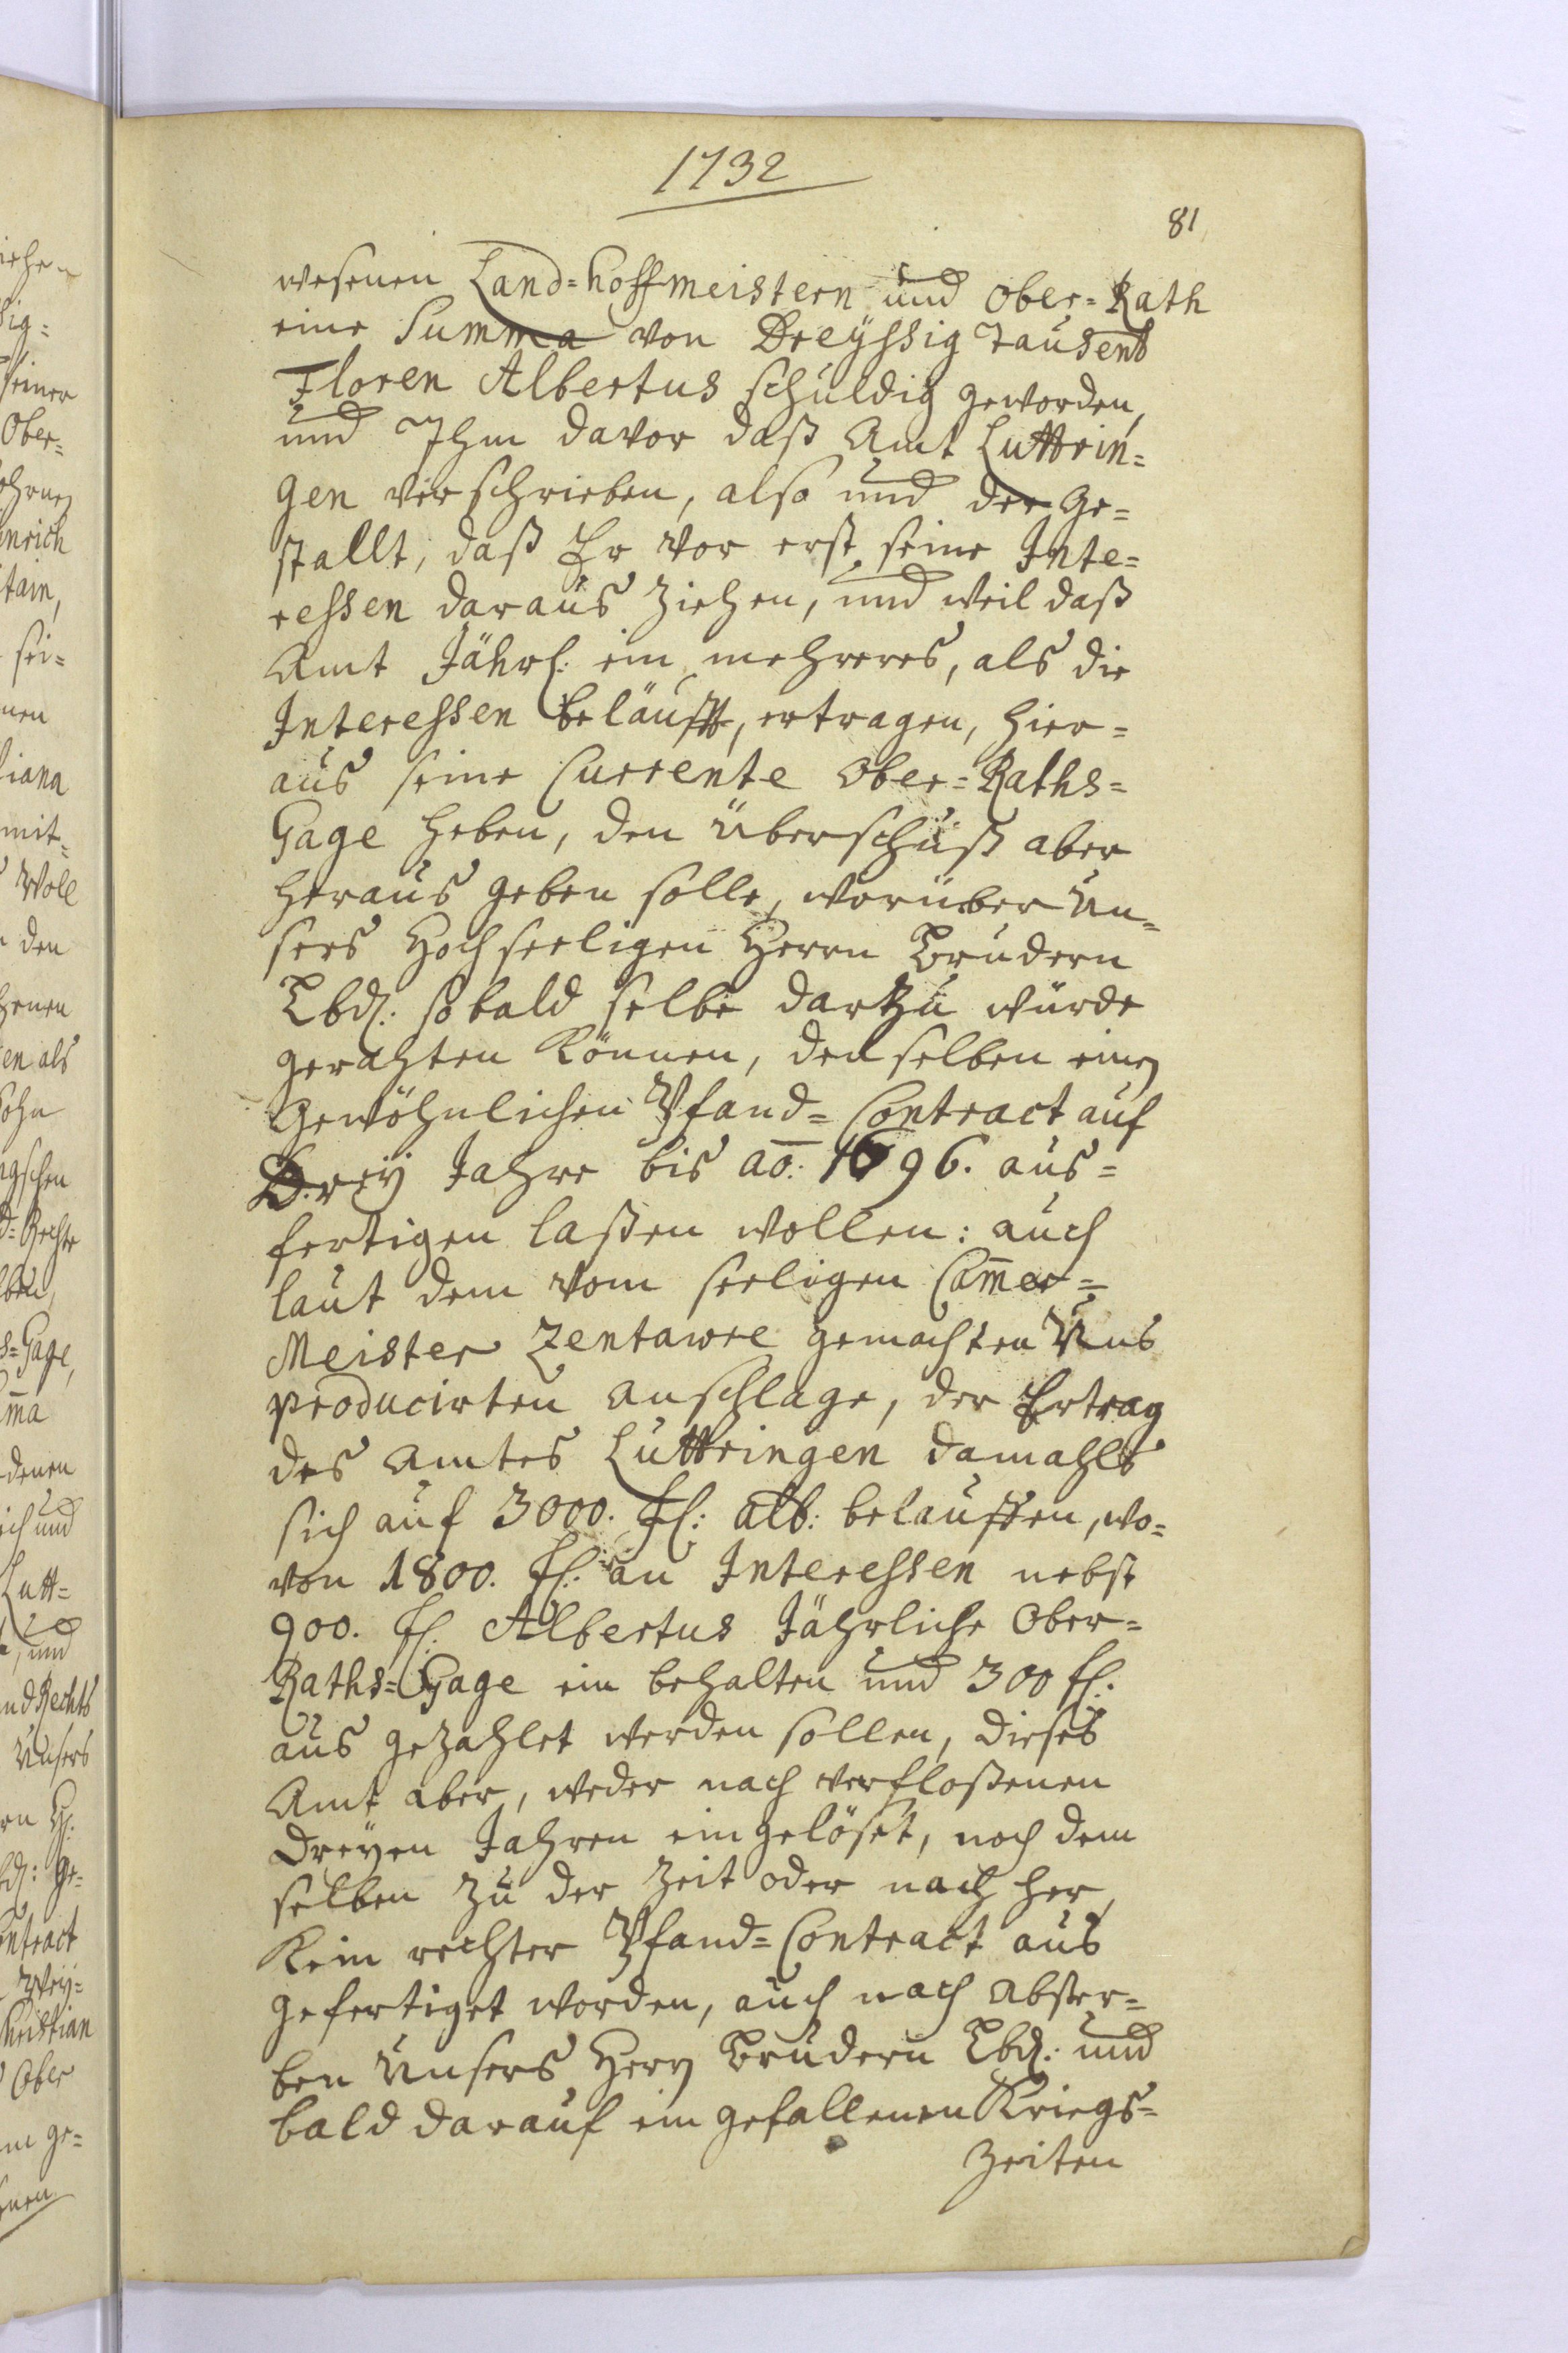 1732
81
wesenen Land=hoffmeistern und Ober=Rath
eine Summa von Dreyßig Tausend
Floren Albertus schuldig geworden,
und Ihm davor daß Amt Luttrin=
gen verschrieben, also und der Ge=
stallt, daß Er vor erst seine Inte=
ressen daraus ziehen, und weil daß
Amt Jährl: ein mehreres, als die
Interessen beläufft, ertragen, hier=
aus seine Currente Ober=Raths=
Gage heben, den überschuß aber
heraus geben solle, worüber Un=
sers Hochseeligen Herrn Brudern
Lbd: so bald selbe dartzu würde
gerahten können, denselben einen
Gewöhnlichen Pfand=Contract auf
Drey Jahre bis ao: 1696. aus=
fertigen laßen wollen: auch
laut dem vom seeligen Cam̄er=
Meister Zentawre gemachten Uns
producirten Anschlage, der Ertrag
des Amtes Luttringen damahls
sich auf 3000. fl: alb: belauffen, wo=
von 1800. fl: an Interessen nebst
900. fl. Albertus Jährliche Ober=
Raths=Gage ein behalten und 300 fl:
aus gezahlet werden sollen, dieses
Amt aber, weder nach verfloßenen
Dreyen Jahren eingelöset, noch dem
selben zu der Zeit oder nach her
Kein rechter Pfand=Contract aus
gefertiget worden, auch nach abster=
ben Unsers Herrn Brudern Lbd: und
bald darauf ein gefallenen Kriegs=
Zeiten